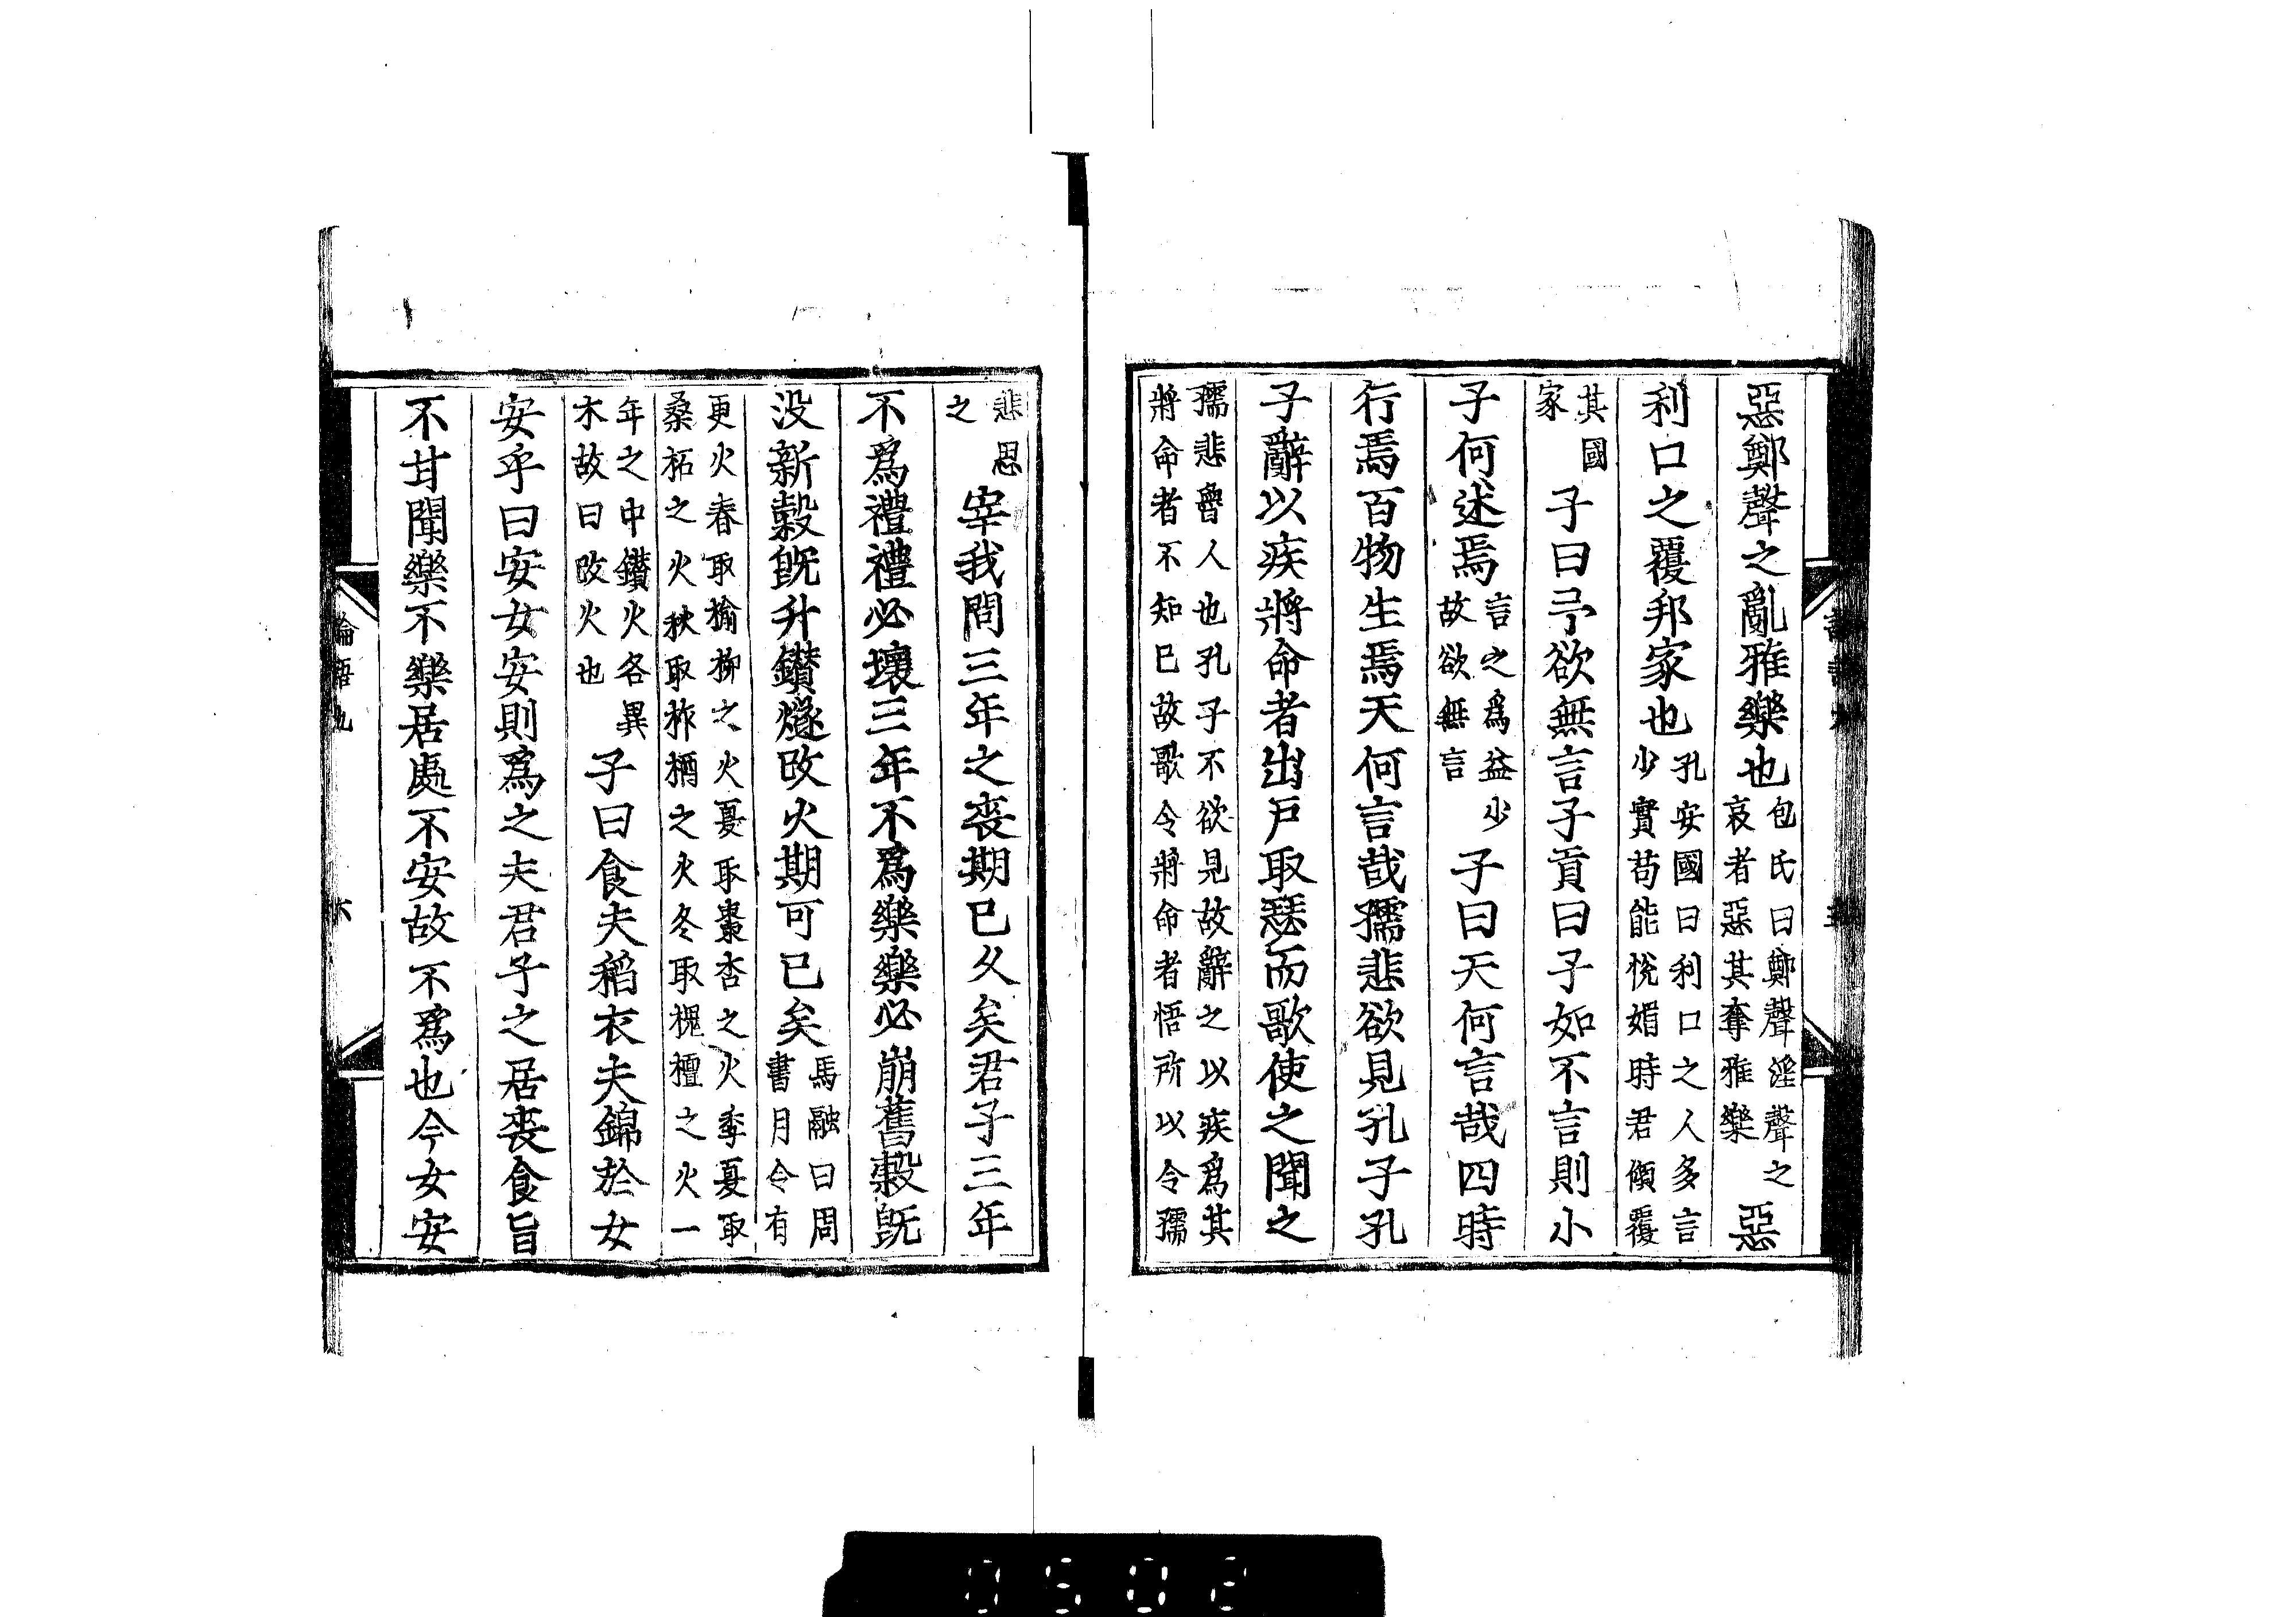 惡鄭聲之亂雅樂也包氏曰鄭聲淫聲之哀者惡其奪雅樂惡
利口之覆邦家也孔安國曰利口之人多言少實苟能悅媚時君傾覆
其國家子曰予欲無言子貢曰子如不言則小
子何述焉言之爲益少故欲無言子曰天何言哉四時
行焉百物生焉天何言哉孺悲欲見孔子孔
子辭以疾將命者出戶取瑟而歌使之聞之
孺悲魯人也孔子不欲見故辭之以疾爲其將命者不知已故歌令將命者悟所以令孺
悲思之宰我問三年之喪期已久矣君子三年
不爲禮禮必壞三年不爲樂樂必崩舊穀既
没新穀既升鑚燧改火期可已矣馬融曰周書月令有
更火春取榆柳之火夏取棗杏之火季夏取桑柘之火秋取柞楢之火冬取槐檀之火一
年之中鑚火各異木故曰改火也子曰食夫稻衣夫錦於女
安乎曰安女安則爲之夫君子之居喪食旨
不甘聞樂不樂居處不安故不爲也今女安
論語九
六
0502